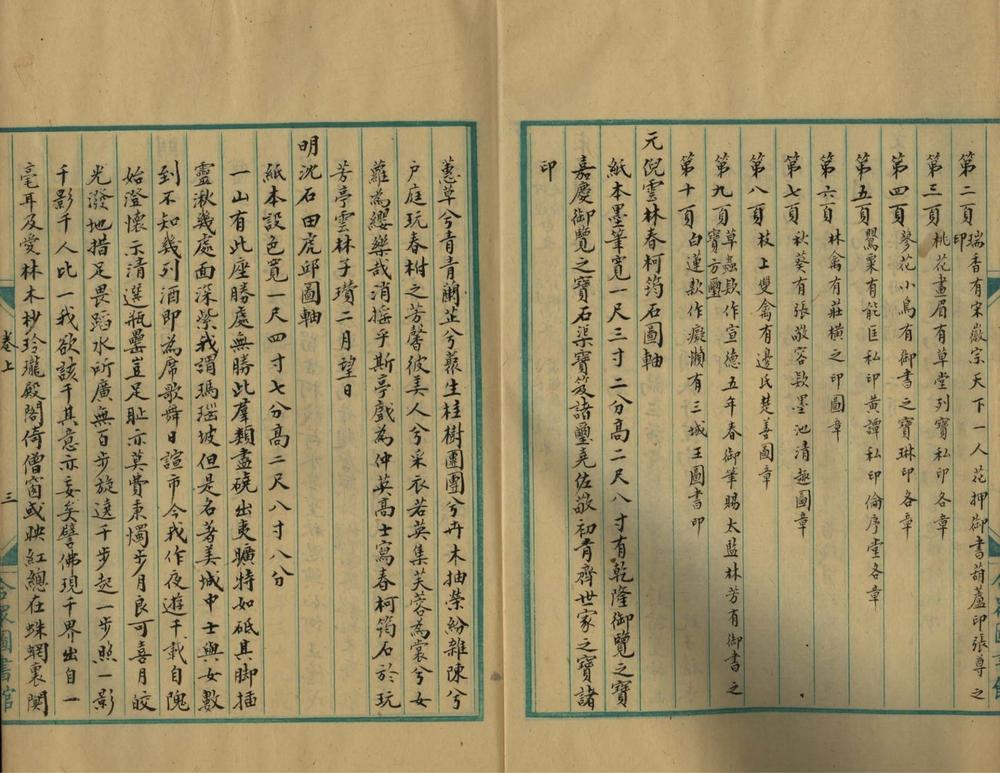 第二頁瑞香有宋徽宗天下一人花押御書葫蘆印張尊之
印
第三頁桃花畫眉有草堂列寶私印各章
第四頁蓼花小鳥有御書之寶琳印各章
第五頁鸎粟有能臣私印黃譚私印倫序堂各章
第六頁林禽有莊橫之印圖章
第七頁秋葵有張敬容欵墨池清趣圖章
第八頁枝上雙禽有邊氏楚善圖章
第九頁草蟲欵作宣德五年春御筆賜太監林芳有御書之
寶方璽
第十頁白蓮欵作癡懶有三城王圖書印
元倪雲林春柯筠石圖軸
紙本墨筆寬一尺三寸二分高二尺八寸有乾隆御覽之寶
嘉慶御覽之寶石渠寶笈諸璽堯佐敬初肯齊世家之寶諸
印
蕙草兮青青蘭芷兮藂生桂樹團團兮卉木抽榮紛雜陳兮
户庭玩春柑之芳馨彼美人兮采衣若英集芙蓉為裳兮女
蘿為纓樂哉消摇乎斯亭戲為仲英高士寫春柯筠石於玩
芳亭雲林子瓚二月望日
明沈石田虎邱圖軸
紙本設色寬一尺四寸七分高二尺八寸八分
一山有此座勝處無勝此羣類盡磽出夷曠特如砥其脚插
靈湫幾處面深紫我謂瑪瑙坡但是名著美城中士與女數
到不知幾列酒即為席歌舞日諠市今我作夜遊千載自隗
始澄懷示清選瓶罍豈足耻亦莫費秉燭步月良可喜月皎
光潑地措足畏蹈水所廣無百步旋遶千步起一步照一影
千影千人比一我欲該千其意亦妄矣譬佛現千界出自一
毫耳及愛林木杪玲瓏殿閣倚僧窗或映紅總在蛛網裏閴
卷上
三
合眾圖書館